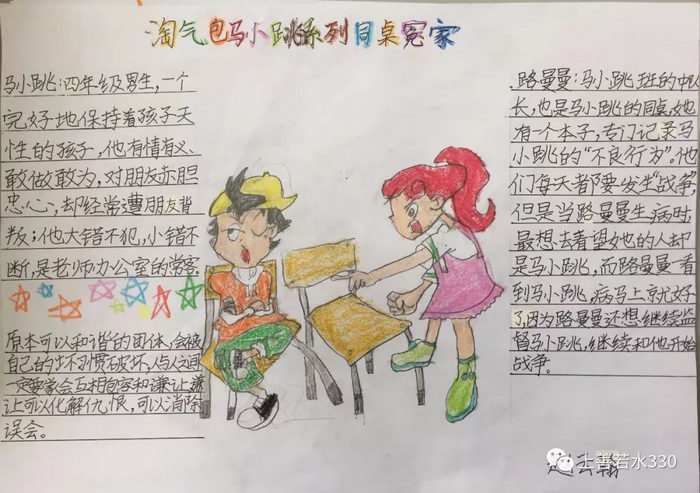 淘气包马小跳系列同桌冤家
马小跳:四年级男生,一个
完好地保持着孩子天
性的孩子,他有情有义、
敢做敢为,对朋友赤胆
忠心,却经常遭朋友背
叛;他大错不犯,小错不
断,是老师办公室的常客
原本可以和谐的团体,会被
自己的坏习惯破坏,人与人之间
一定要学会互相包容和谦让,谦
让可以化解仇恨,可以消除
误会。
路曼曼:马小跳班的中队
长,也是马小跳的同桌,她
有一个本子,专门记录马
小跳的“不良行为”。他
们每天都要发生“战争”
但是当路曼曼生病时
最想去看望她的人却
是马小跳,而路曼曼一看
到马小跳,病马上就好
了,因为路曼曼还想继续监
督马小跳,继续和他开始
战争。
上善若水330